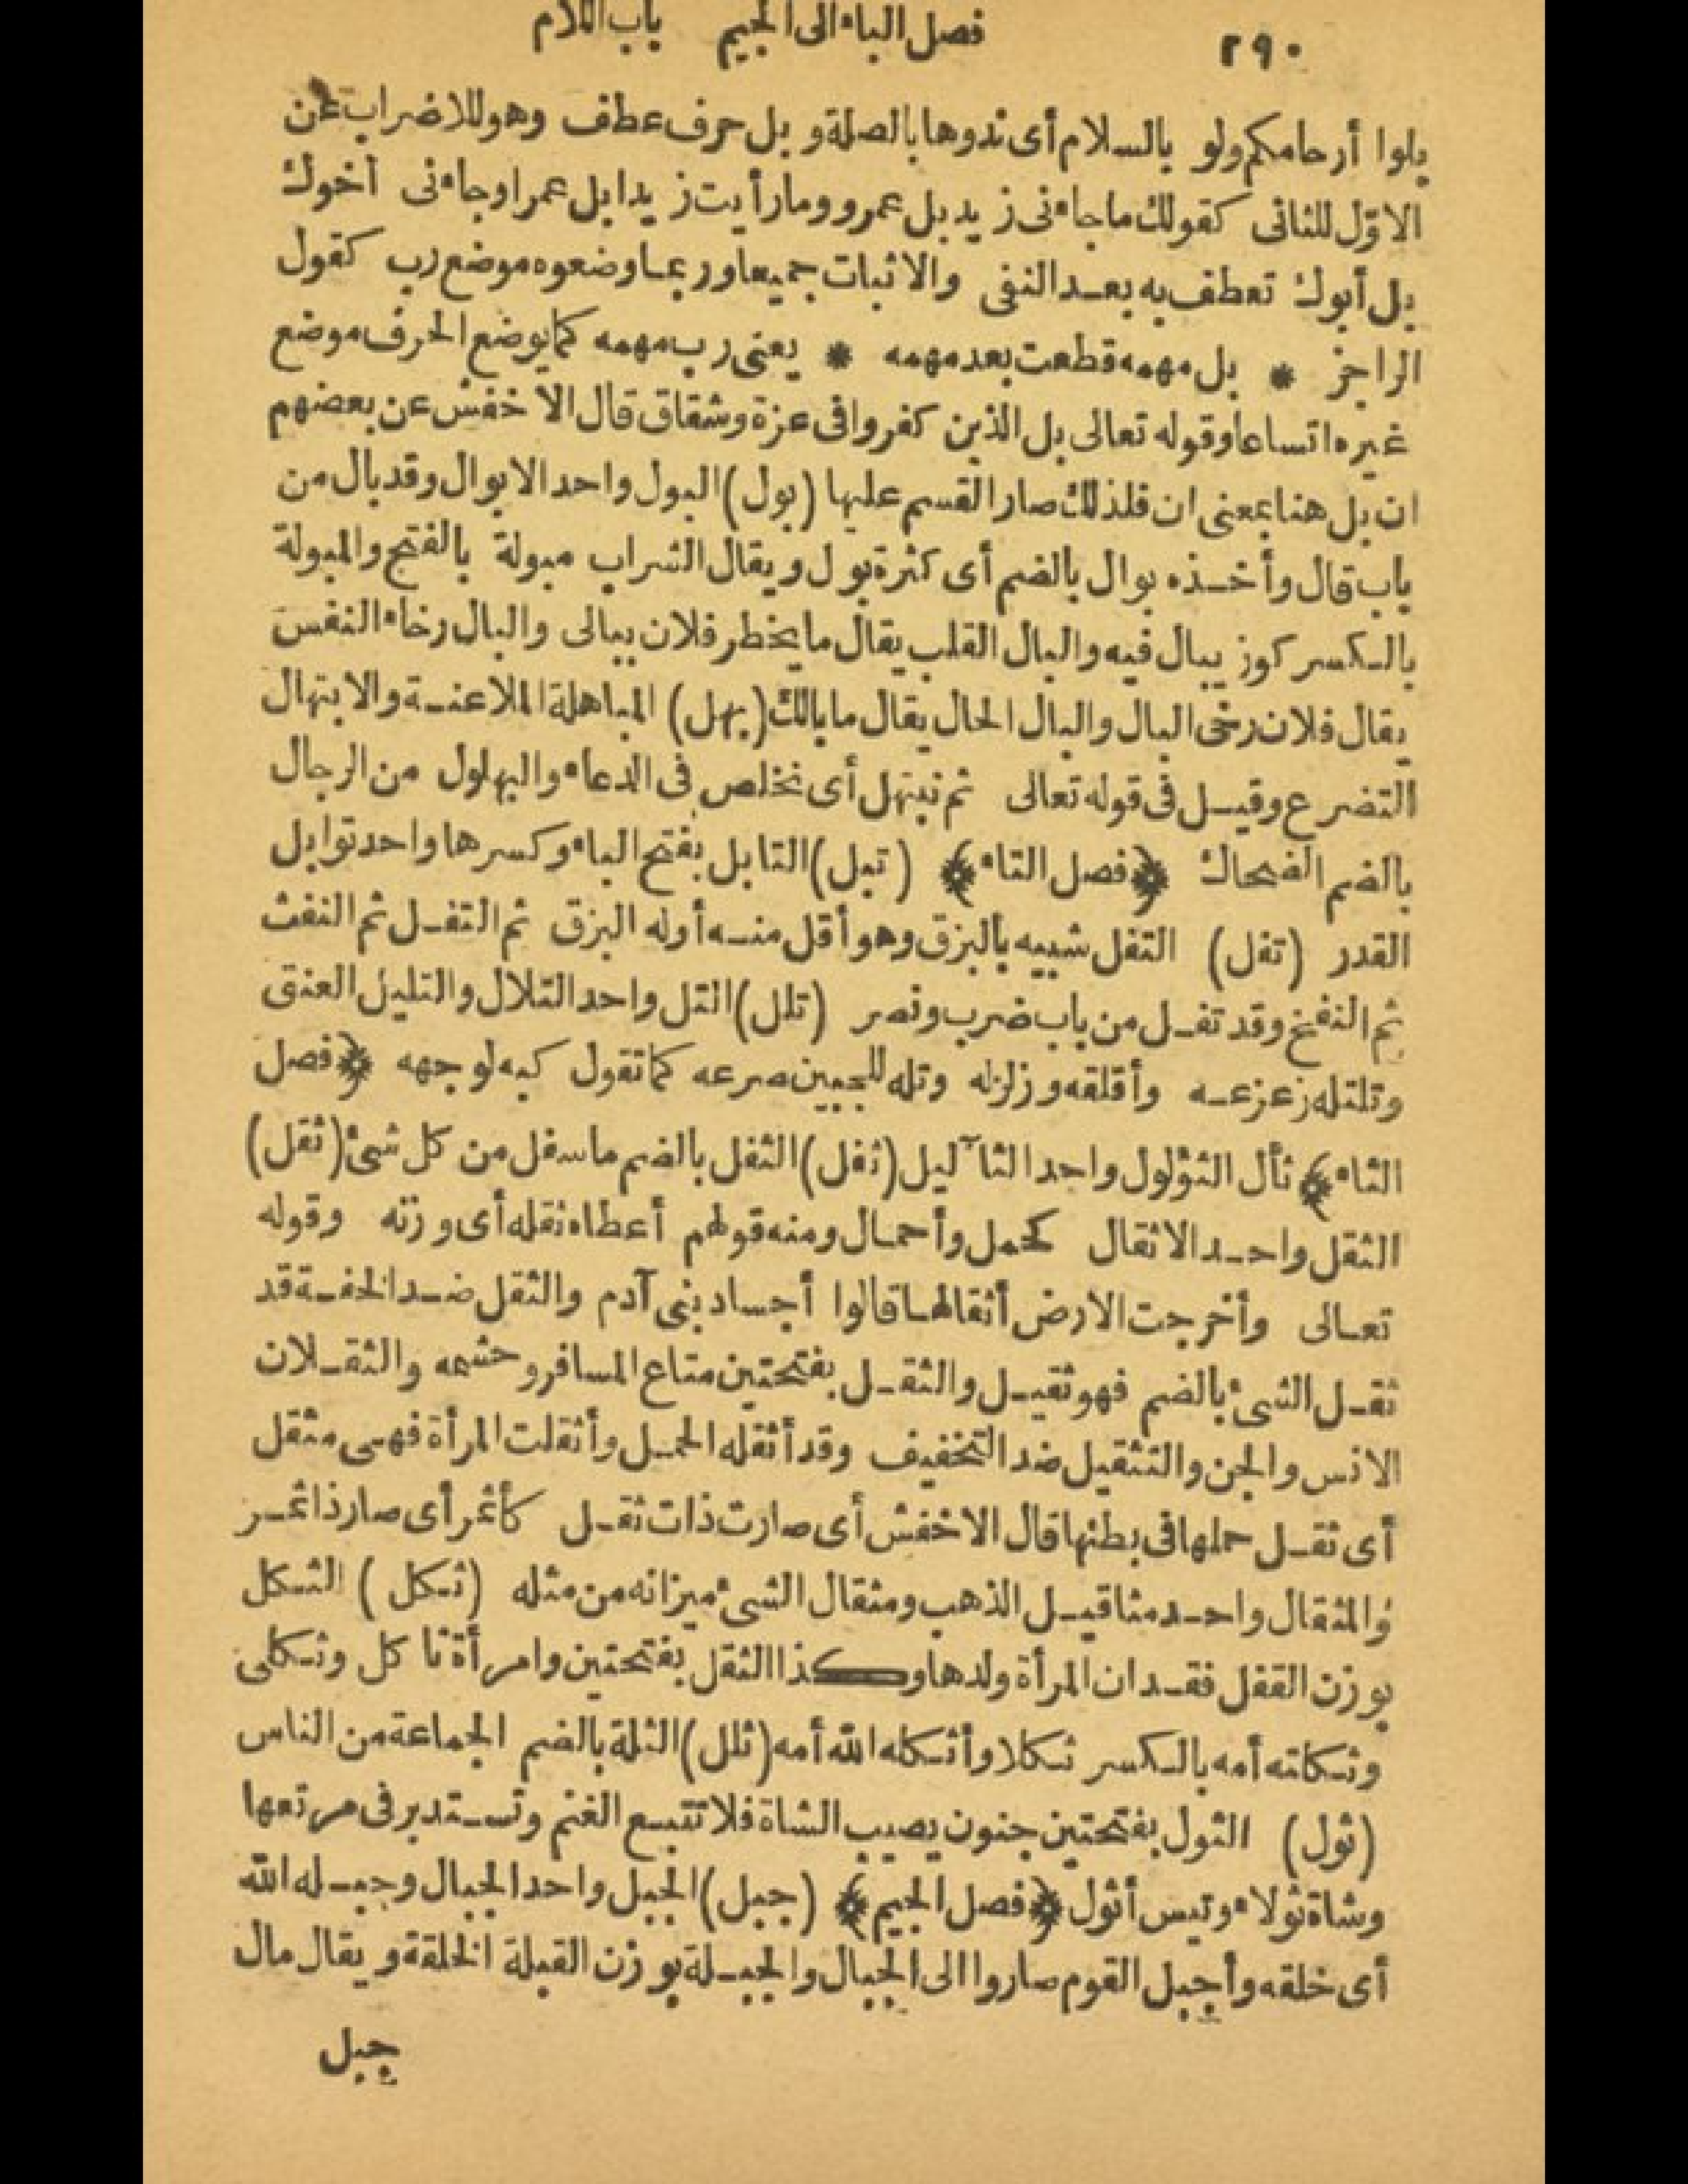 ٢٩٠ فصل الباء الى الجيم باب اللام
بلوا أرحامكم ولو بالسلام أى ندوها بالصلة و بل حرف عطف وهو للاضراب عن
الاوّل للثانى كقولك ماجاءنى زيد بل عمرو ومارأيت زيدا بل عمرا وجاءنى أخوك
بل أبوك تعطف به بعد النفى والاثبات جميعا وربما وضعوه موضع رب كقول
الراجز * بل مهمه قطعت بعد مهمه * يعنى رب مهمه كما يوضع الحرف موضع
غيره اتساعا وقوله تعالى بل الذين كفروا فى عزة وشقاق قال الاخفش عن بعضهم
ان بل هنا بمعنى ان فلذلك صار القسم عليها (بول) البول واحد الابوال وقد بال من
باب قال وأخذه بوال بالضم أى كثرة بول ويقال الشراب مبولة بالفتح والمبولة
بالكسر كوز يبال فيه والبال القلب يقال مايخطر فلان ببالى والبال رخاء النفس
يقال فلان رخى البال والبال الحال يقال مابالك (بهل) المباهلة الملاعنة والابتهال
التضرع وقيل فى قوله تعالى ثم نبتهل أى نخلص فى الدعاء والبهلول من الرجال
بالضم الضحاك ﴿فصل التاء﴾ (تبل) التابل بفتح الباء وكسرها واحد توابل
القدر (تفل) التفل شبيه بالبزق وهو أقل منه أوله البزق ثم التفل ثم النفث
ثم النفخ وقد تفل من باب ضرب ونصر (تلل) التل واحد التلال والتليل العنق
وتلتله زعزعه وأقلقه وزلزله وتله للجبين صرعه كما تقول كبه لوجهه ﴿فصل
الثاء﴾ ثأل الثؤلول واحد الثآليل (ثفل) الثفل بالضم ماسفل من كل شئ (ثقل)
الثقل واحد الاثقال كحمل وأحمال ومنه قولهم أعطاه ثقله أى وزنه وقوله
تعالى وأخرجت الارض أثقالها قالوا أجساد بنى آدم والثقل ضد الخفة قد
ثقل الشئ بالضم فهو ثقيل والثقل بفتحتين متاع المسافر وحشمه والثقلان
الانس والجن والتثقيل ضد التخفيف وقد أثقله الحمل وأثقلت المرأة فهى مثقل
أى ثقل حملها فى بطنها قال الاخفش أى صارت ذات ثقل كأثمر أى صار ذا ثمر
والمثقال واحد مثاقيل الذهب ومثقال الشئ ميزانه من مثله (ثكل) الثكل
بوزن القفل فقدان المرأة ولدها وكذا الثقل بفتحتين وامرأة ثاكل وثكلى
وثكلته أمه بالكسر ثكلا وأثكله الله أمه (ثلل) الثلة بالضم الجماعة من الناس
(ثول) الثول بفتحتين جنون يصيب الشاة فلا تتبع الغنم وتستدير فى مرتعها
وشاة ثولاء وتيس أثول ﴿فصل الجيم﴾ (جبل) الجبل واحد الجبال وجبله الله
أى خلقه وأجبل القوم صاروا الى الجبال والجبلة بوزن القبلة الخلقة ويقال مال
جبل